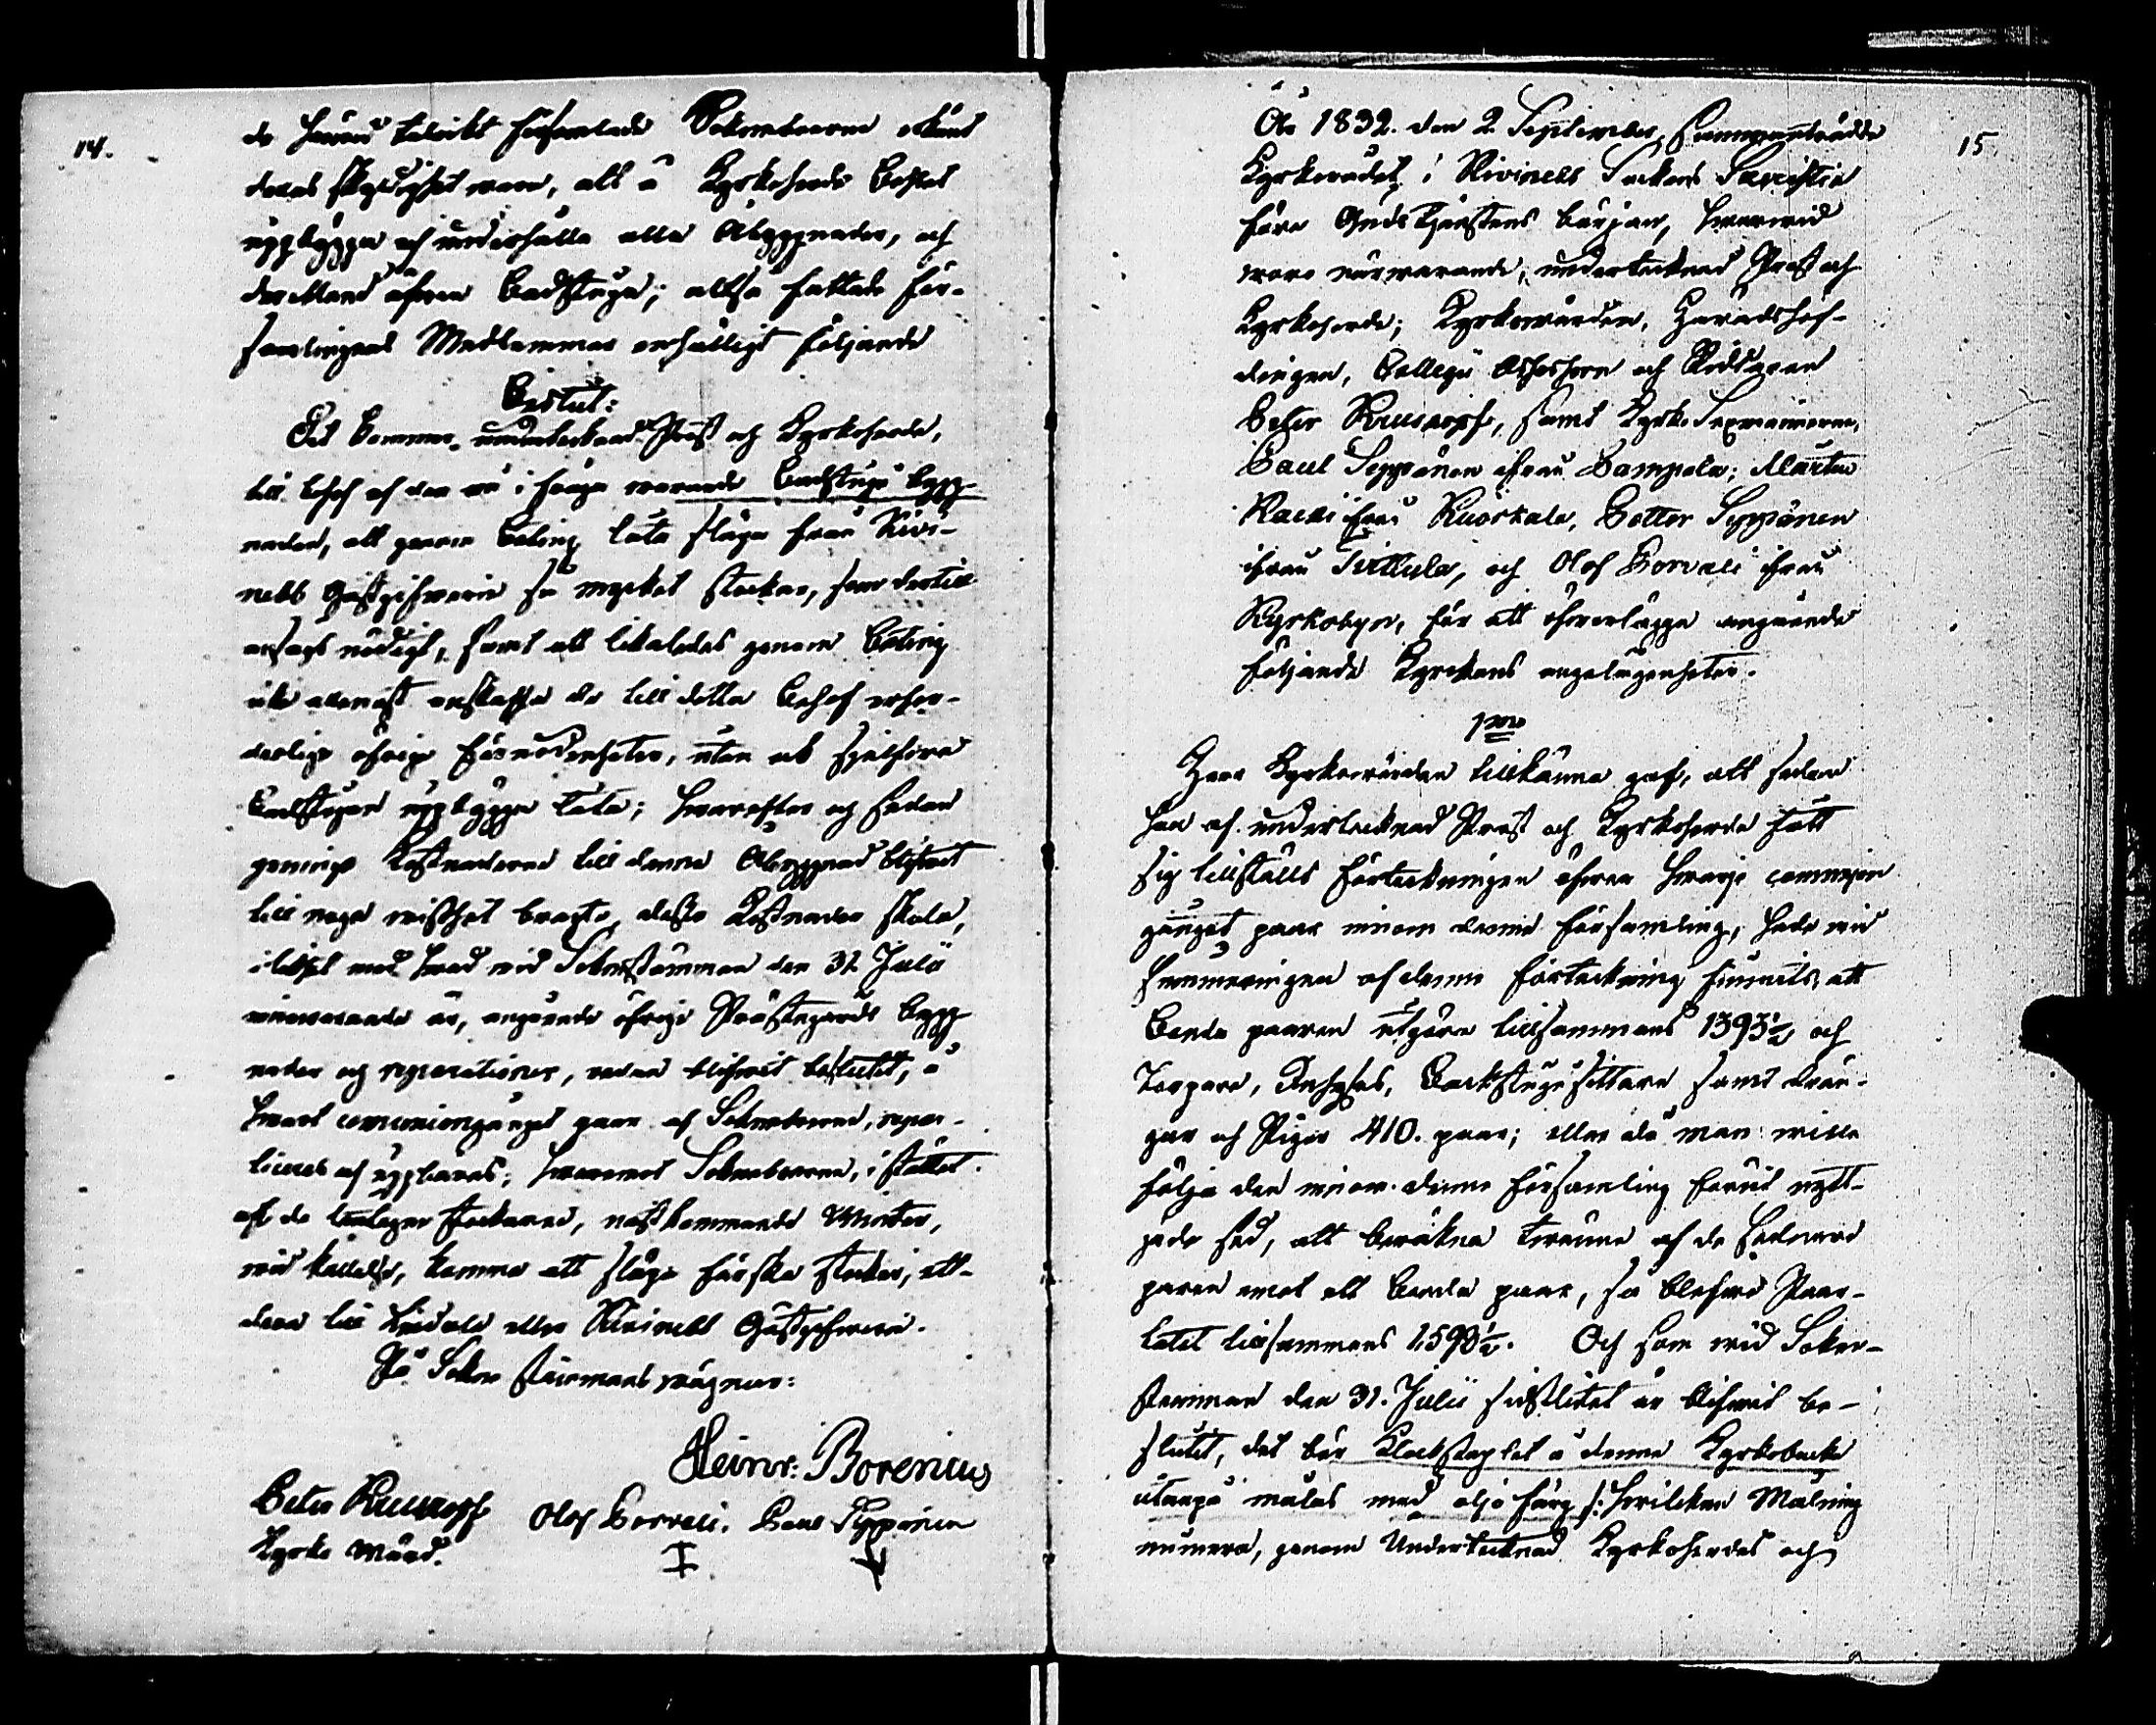 14.
de häruti talrikt församlade Sokneboerne erkänt
deras skyldighet vara, att å Kyrkoherde Bohlet
uppbygga och underhålla alla Åbyggnader, och
deribland äfven Badstuga; alltså fattade För-
samlingens Medlemmar enhälligt följande
Beslut:
Det kommer undertecknad Prost och Kyrkoherde,
till behof af den nu i fråga warande Badstugu bygg-
naden, att genom beting låta släpa från Kivi-
nebb Gästgifveri så mycket stockar, som dertill
anses nödigt, samt att likaledes genom beting
icke allenast anskaffa de till detta behof erfor-
derlige öfrige förnödenheter, utan ock sjelfva
Badstugan uppbygga låta; hvarefter och sedan
 Kostnaderne till denna Åbyggnad blifvit
till noga visshet bragte, desse Kostnader skola,
i likhet med hvad vid Sokenstämman den 31 Julii
innevarande år, angående öfrige Prästegårds bygg-
nader och reparationer, redan blifvit beslutit, å
hvart communiongånget paar af Sokneboerne, repar-
tieras och uppbäras; hvaremot Sokneboerne, i stället
för de stockarne, nästkommande Winter,
vid kallelse, komma att släpa färska stockar, att-
dera till Lindula eller Kivinebb Gästgifveri.
På Sokne stämmans vägnar:
Heinr: Borenius
Peter Kuusropf Olof Borvali. Paul Seppänen
Kyrko Wärd.
15.
År 1832. den 2 September, sammanträdde
Kyrkorådet i Kivinebb Sockens Sacristia
före Gudstjenstens början, hvarvid
voro närvarande, undertecknad Prost och
Kyrkoherde; Kyrkovärden, Häradshöf-
dingen, Collegii Assessorn och Riddaren
Peter Kuusropf, samt Kyrko Sexmännerne,
Paul Seppänen ifrån Pampala; Mårten
 ifrån , Petter Seppänen
ifrån , och Olof Borvali ifrån
Kyrkobyn, för att öfverlägga angående
följande Kyrckans angelägenheter.
1mo
Herr Kyrkovärden tillkänna gaf, att sedan
han af undertecknad Prost och Kyrkoherde fått
sig tillstäld förteckningen öfver hvarje commun-
gånget paar inom denna församling, hade vid
summeringen af denna förteckning funnits, att
Bonde paaren utgöra tillsammans 1393½ och
Torpare, Inhyses, Backstugusittare samt Drän-
gar och Pigor 410. paar; eller då man ville
följa den inom denna församling förut nytt-
jade sed, att beräkna tvenne af de sednare
paren emot ett bonde paar, så blefve Paar-
talet tillsammans 1,598½. Och som vid Soken-
stämman den 31. Julii sistlidet år blifvit be-
slutit, det bör Klockstapeln å denna Kyrkobacke
utanpå målas med olje färg /: hvilcken Målning
numera, genom Undertecknad Kyrkoherdes och